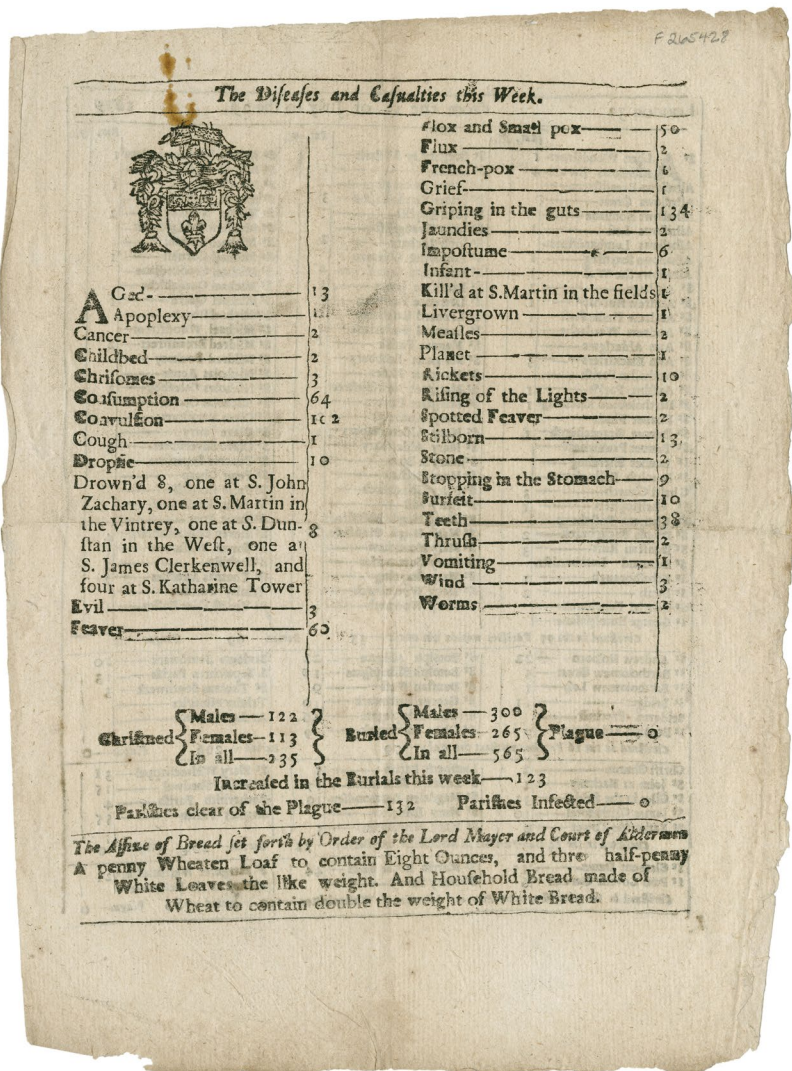 F 265428
The Diſeaſes and Caſualties this Week.
AGed 13
Apoplexy 1
Cancer 2
Childbed 2
Chriſomes 3
Conſumption 64
Convulſion 102
Cough 1
Dropſie 10
Drown'd 8, one at S. John
Zachary, one at S. Martin in
the Vintrey, one at S. Dun-
ſtan in the Weſt, one a 8
S. James Clerkenwell, and
four at S. Katharine Tower
Evil 3
Feaver 60
Flox and Small pox 50
Flux 2
French-pox
Grief 1
Griping in the guts 134
Jaundies 2
Impoſtume 6
Infant 1
Kill'd at S. Martin in the fields 1
Livergrown 1
Meaſles 2
Planet 1
Rickets 10
Riſing of the Lights 2
Spotted Feaver 2
Stilborn 13
Stone 2
Stopping in the Stomach 9
Surfeit 10
Teeth 38
Thruſh 2
Vomiting 1
Wind 3
Worms 2
Chriſtned Males 122 Females 113 In all 235
Buried Males 300 Females 265 In all 565
Plague 0
Increaſed in the Burials this week 123
Pariſhes clear of the Plague 132 Pariſhes Infected 0
The Aſſize of Bread ſet forth by Order of the Lord Mayer and Court of Aldermen
A penny Wheaten Loaf to contain Eight Ounces, and thre half-penny
White Loaves the like weight. And Houſhold Bread made of
Wheat to contain double the weight of White Bread.